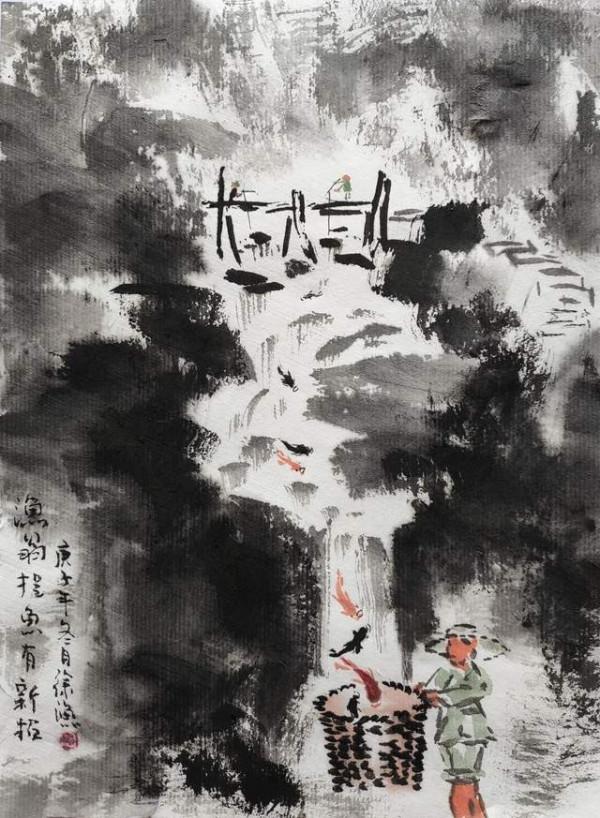 漁翁捉鱼有新招
庚子年冬月徐